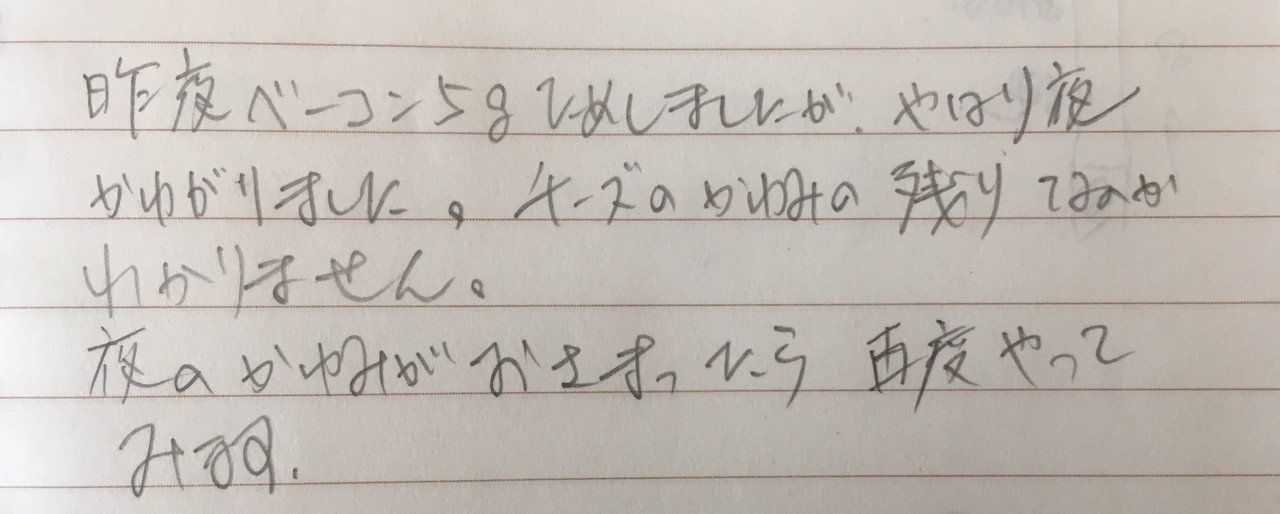 昨夜ベーコン5gためしましたが、やはり夜
かゆがりました。チーズのかゆみの残りなのか
わかりません。
夜のかゆみがおさまったら再度やって
みます.